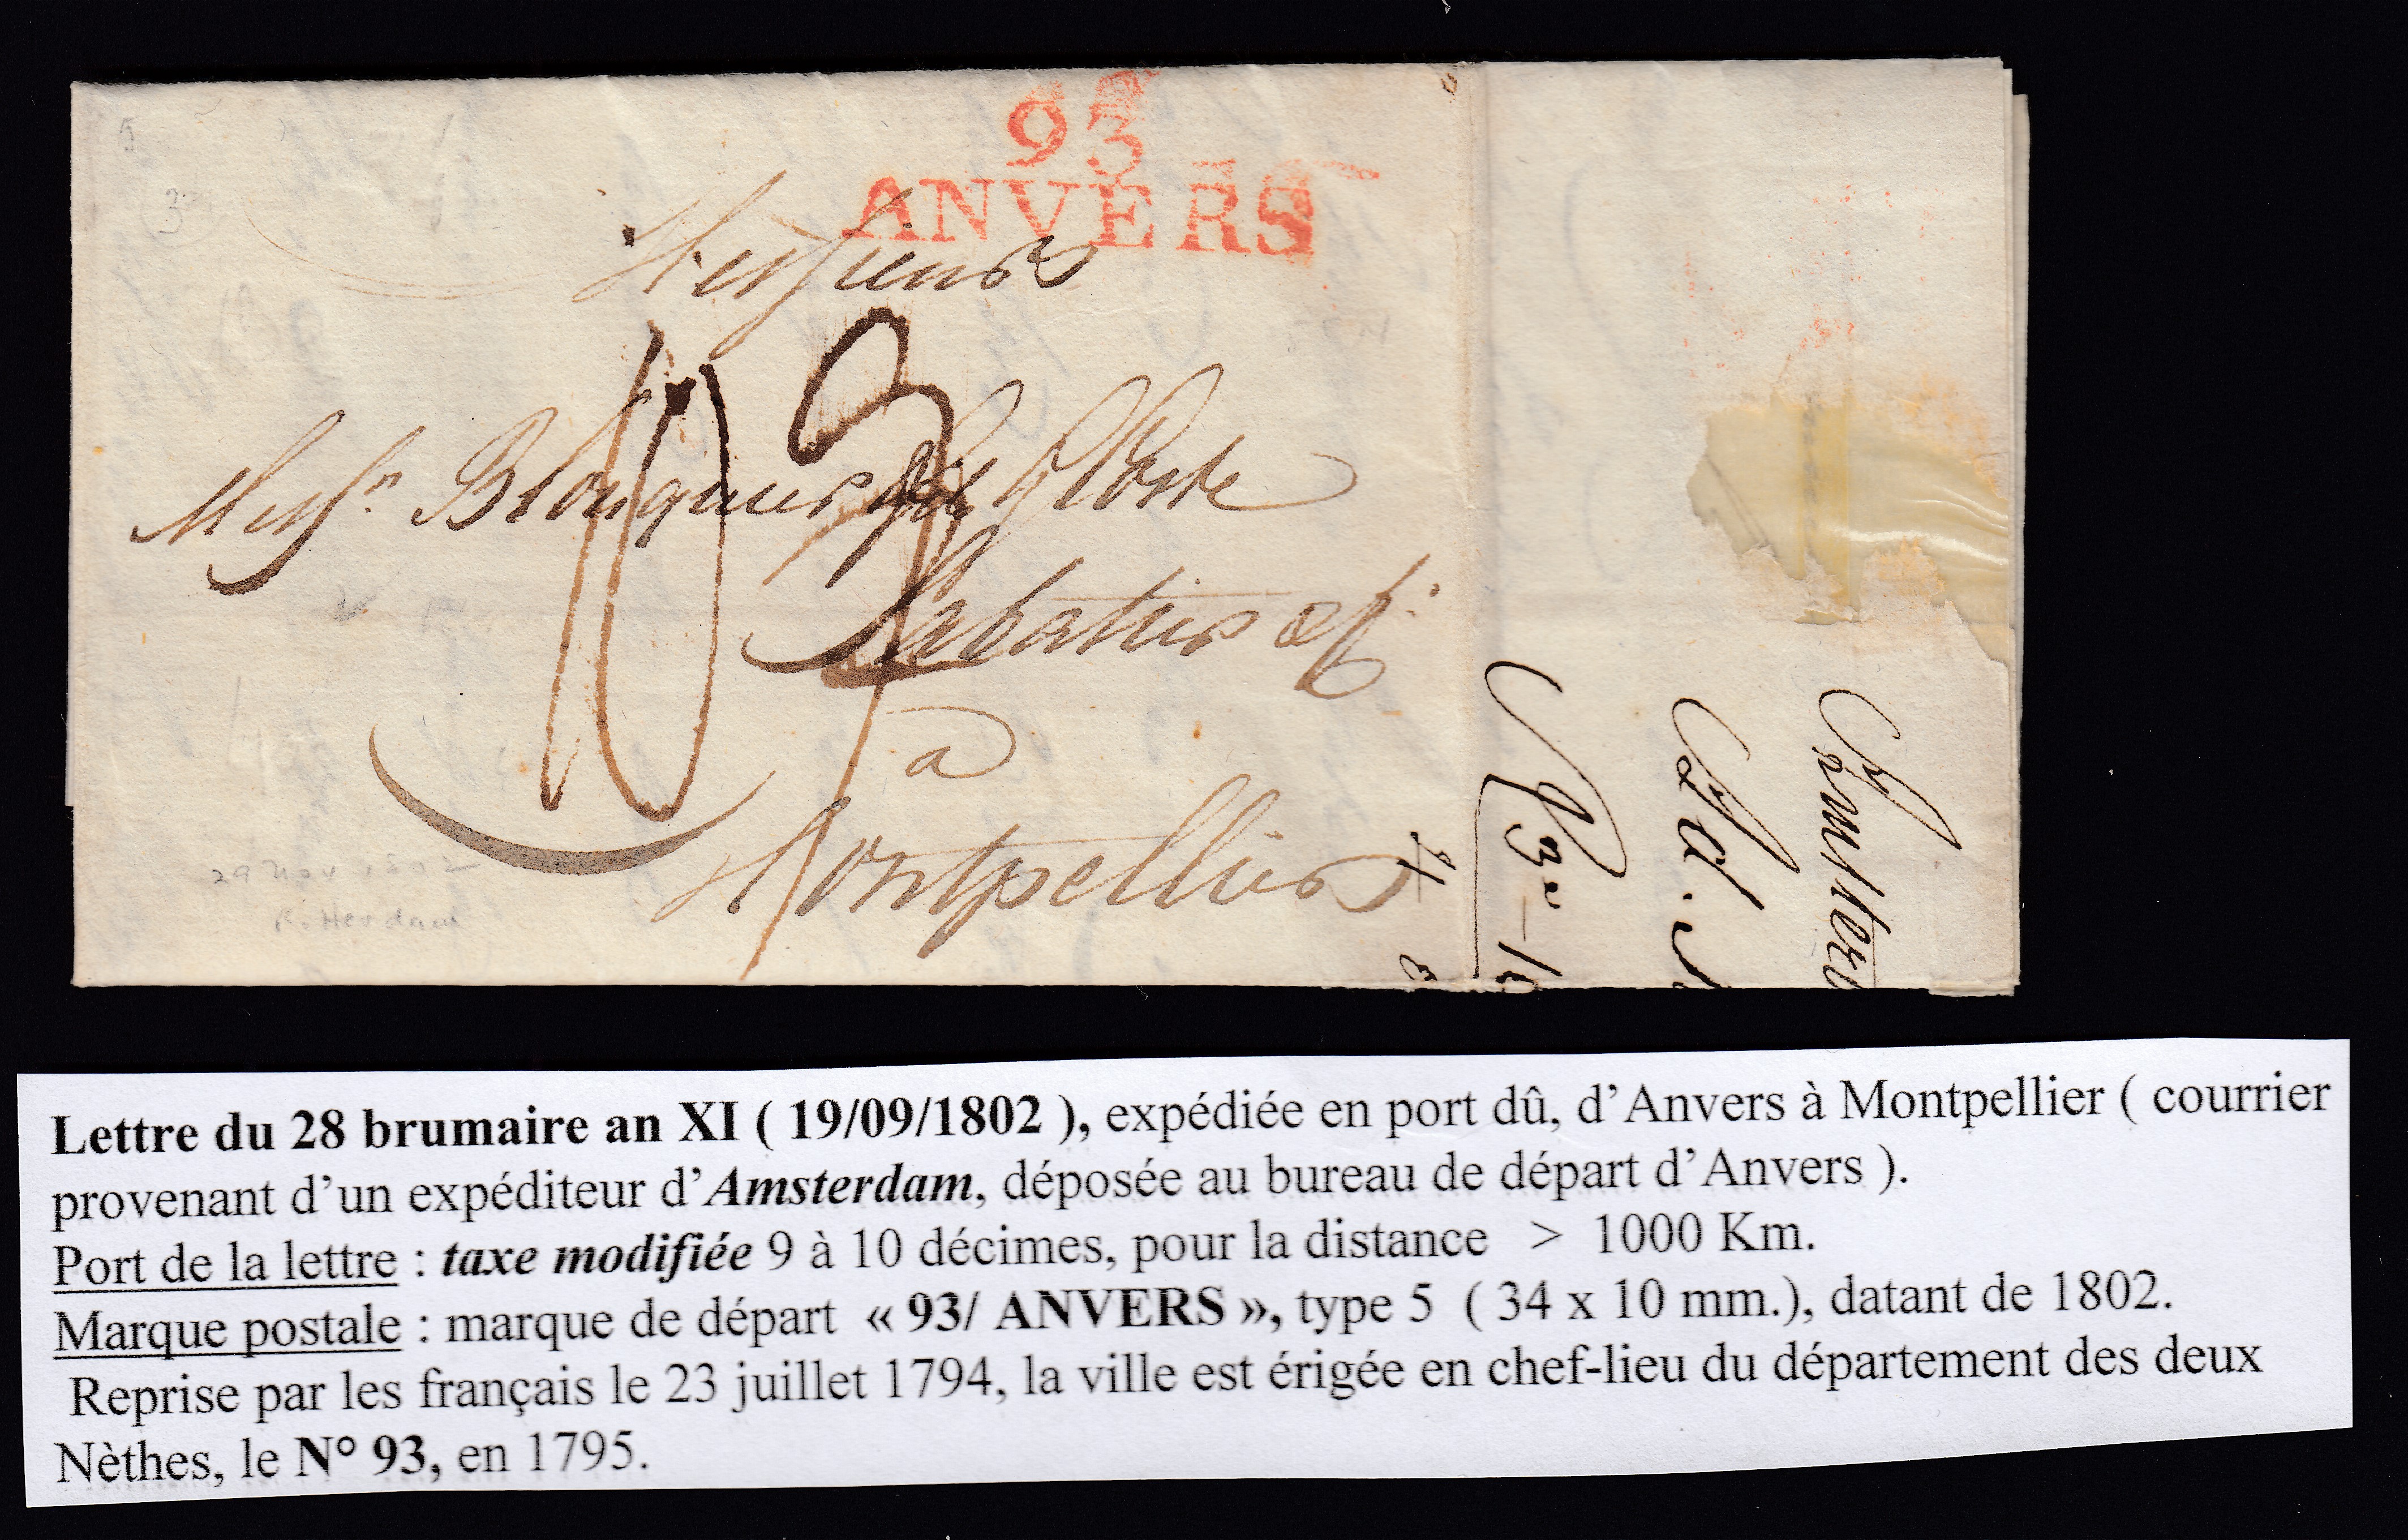 93
ANVERS
Messieurs
Messrs. Blouquier fils
Sabatier & Ce.
a
Montpellier
29 Nov 1802
Amster
Lettre du 28 brumaire an XI ( 19/09/1802 ), expédiée en port dû, d’Anvers à Montpellier ( courrier
provenant d’un expéditeur d’Amsterdam, déposée au bureau de départ d’Anvers ).
Port de la lettre : taxe modifiée 9 à 10 décimes, pour la distance > 1000 Km.
Marque postale : marque de départ « 93/ ANVERS », type 5 ( 34 x 10 mm.), datant de 1802.
Reprise par les français le 23 juillet 1794, la ville est érigée en chef-lieu du département des deux
Nèthes, le N° 93, en 1795.